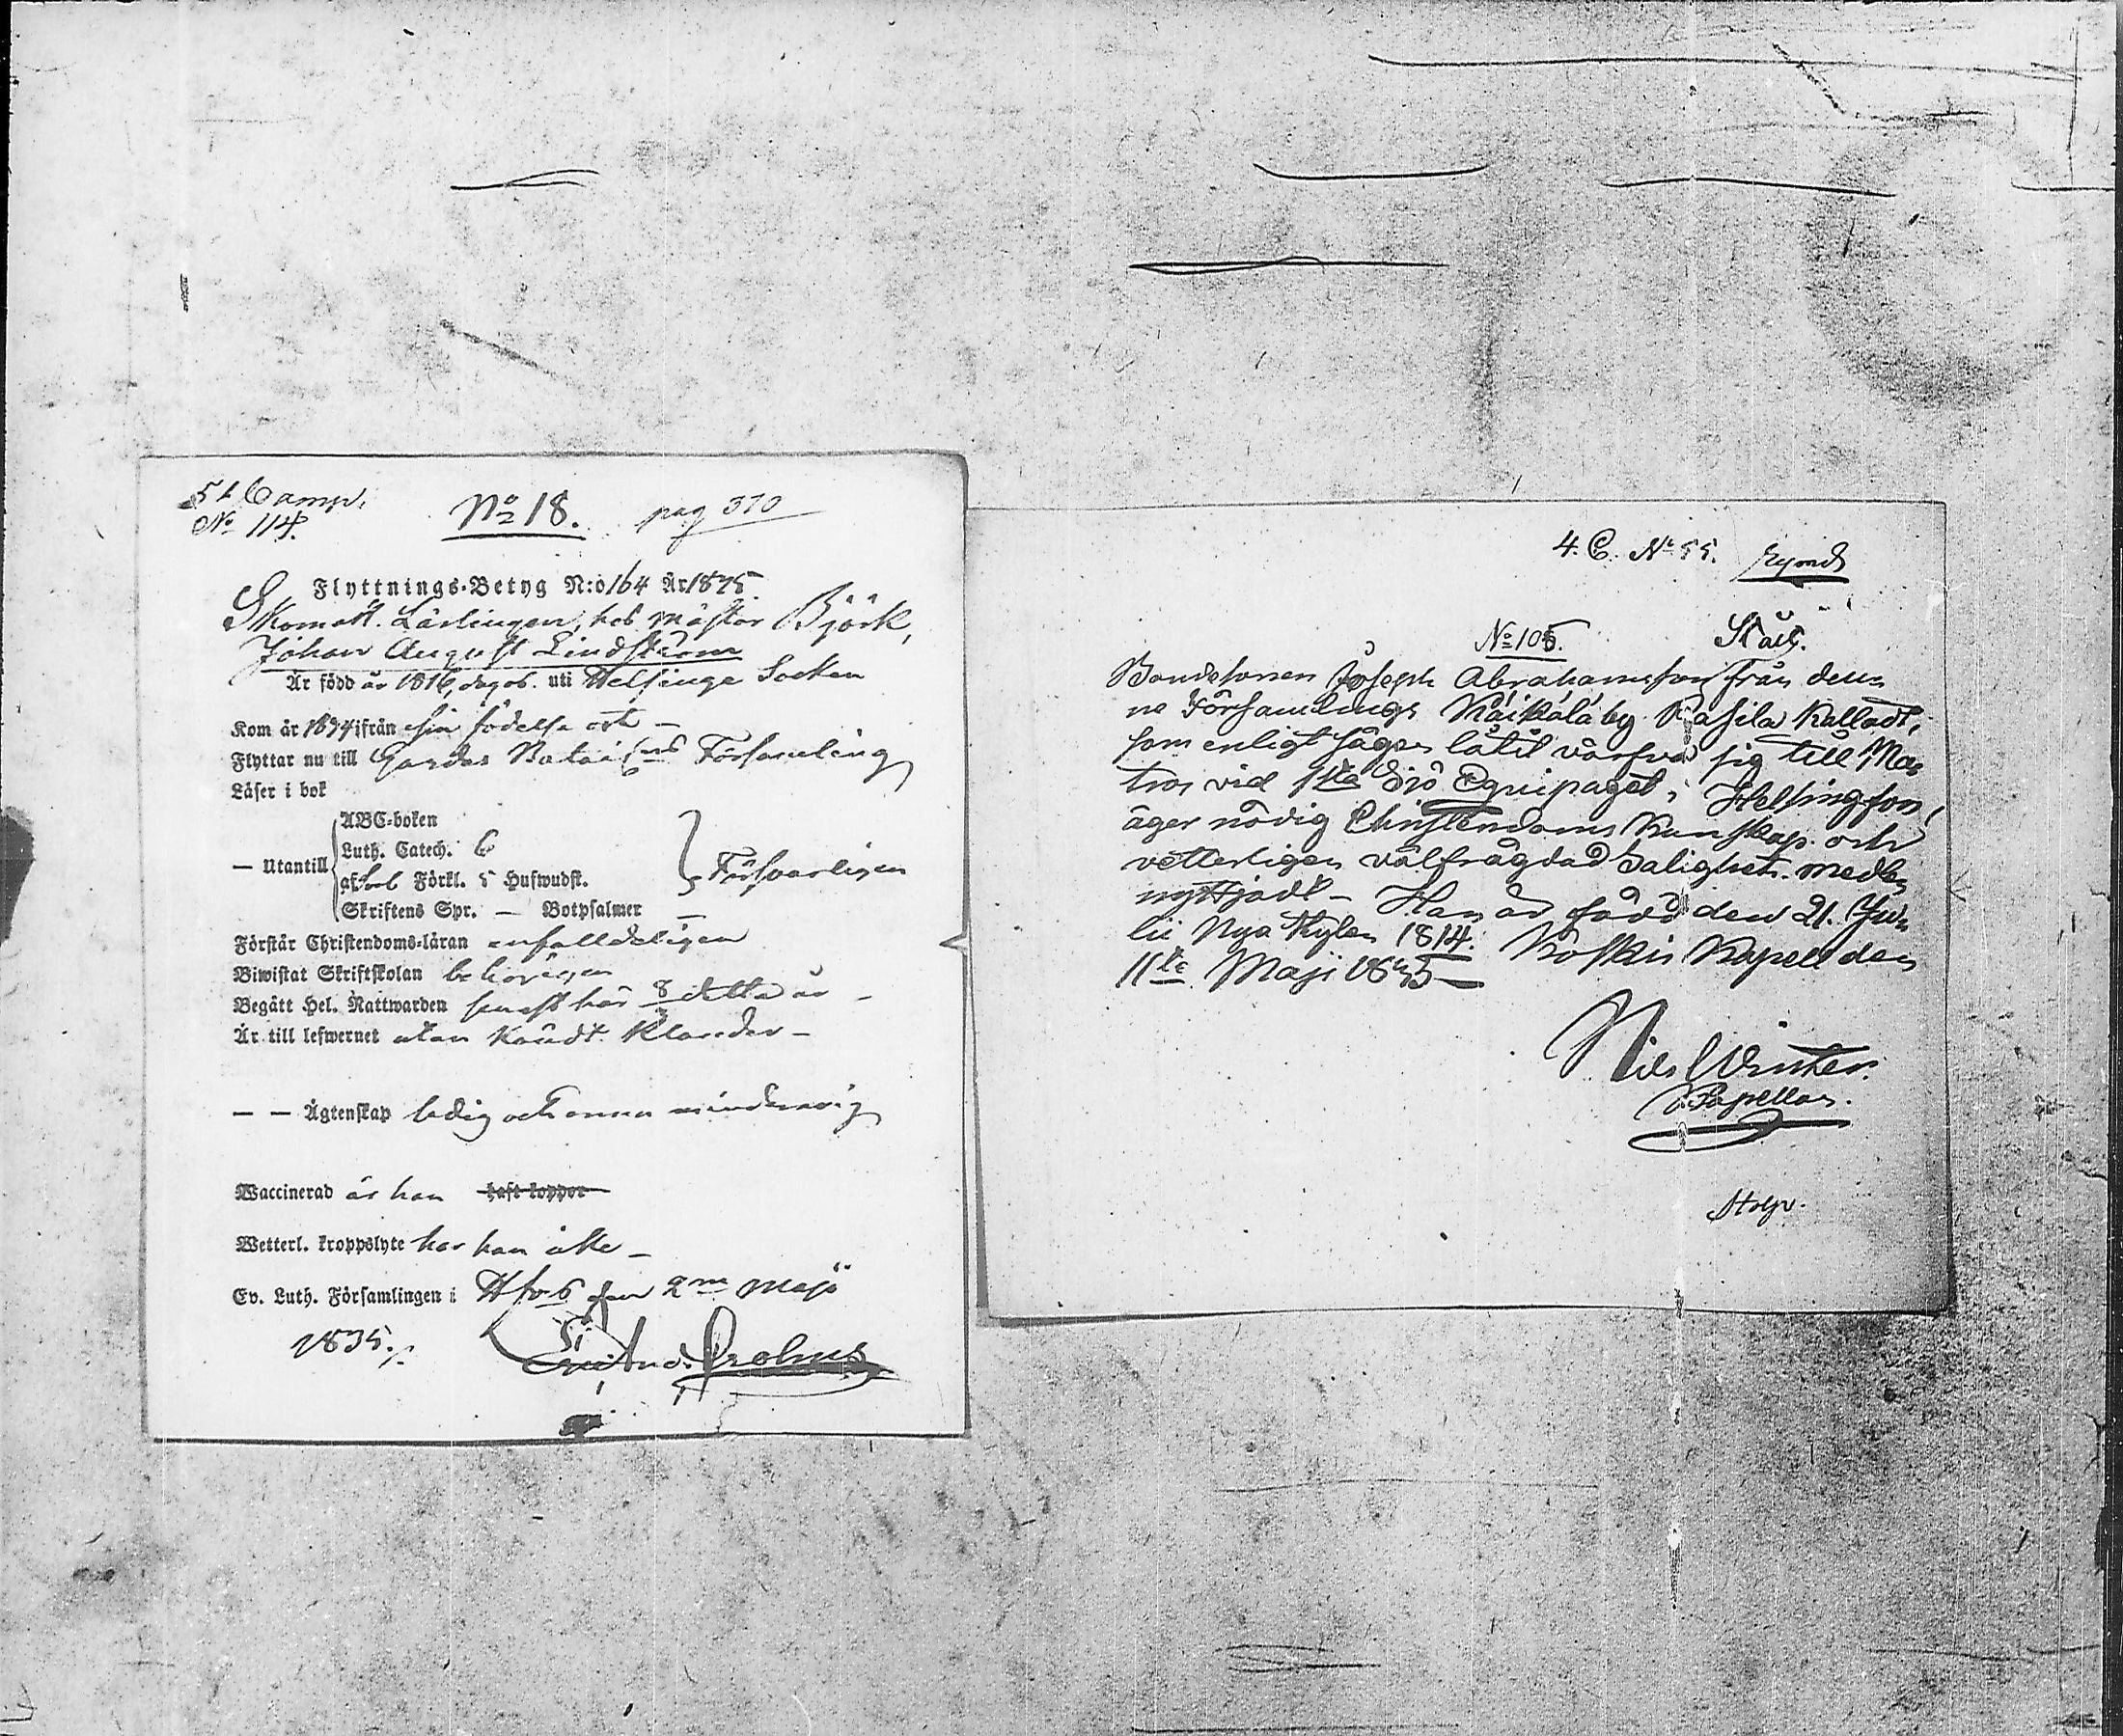 5t Comp.
No 114.
No 18.
pag 370
Flyttnings-Betyg N:o 164 År 1835.
Skomak. Lärlingen, hos Mästar Björk,
Johan August Lindström
Är född år 1816, dag ob. uti Helsinge Socken
Kom år 1834 ifrån sin födelse ort —
Flyttar nu till Gardes Batai(ns Församling
Läser i bok
— Utantill
ABC-boken
Luth. Catech. 6
af Förkl. 5 Hufwudst.
Skriftens Spr. — Botpsalmer —
Försvarligen
Förstår Christendoms-läran enfalldeligen
Biwistat Skriftskolan behörigen
Begått Hel. Nattwarden senast här 8/3 detta år —
Är till lefwernet utan kändt klander —
— — Ägtenskap ledig och ännu minderårig
Waccinerad är han haft koppor
Wetterl. kroppslyte har han icke —
Ev. Luth. Församlingen i H:fors den 2m Maji
1835.
4. C. No 55.
No 105.
Bondesonen Joseph Abrahamsson från den-
na Församlings Käikälä by Rasila Kallad,
som enligt sägen låtit värfva sig till Ma-
tros vid 1sta Sjö Equipaget i Helsingfors,
äger nödig Christendoms Kunskap och
vetterligen välfrägdad Salighets medlen
nyttjadt — Han är född den 21. Ju-
lii Nya Stylen 1814. Koskis Kapell den
11te Maji 1835 —
Nils Winter.
V. Capellan.